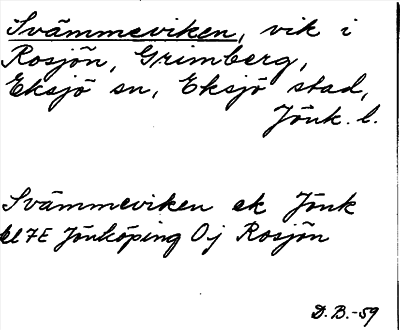 Svämmeviken, vik i
Rosjön, Grimberg,
Eksjö sn, Eksjö stad,
Jönk. l.
Svämmeviken ek Jönk
bl 7E Jönköping Oj Rosjön
D.B.-59